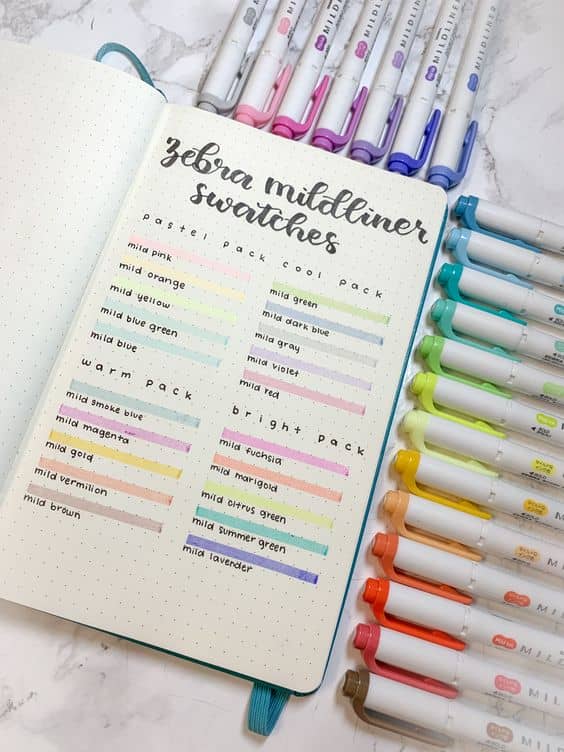 zebra mildliner
swatches
pastel pack
mild pink
mild orange
mild yellow
mild blue green
mild blue
cool pack
mild green
mild dark blue
mild gray
mild violet
mild red
warm pack
mild smoke blue
mild magenta
mild gold
mild vermilion
mild brown
bright pack
mild fuchsia
mild marigold
mild citrus green
mild summer green
mild lavender
MILDLINER
MILDLINER
MILDLINER
MILDLINER